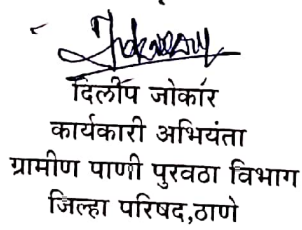 दिलीप जोकार
कार्यकारी अभियंता
ग्रामीण पाणी पुरवठा विभाग
जिल्हा परिषद,ठाणे